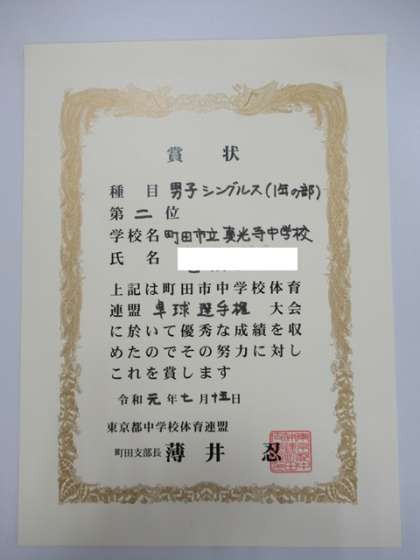 賞状
種目 男子シングルス(1年の部)
第二位
学校名 町田市立真光寺中学校
氏名
上記は町田市中学校体育
連盟 卓球選手権 大会
に於いて優秀な成績を収
めたのでその努力に対し
これを賞します
令和元年七月十五日
東京都中学校体育連盟
町田支部長 薄井 忍